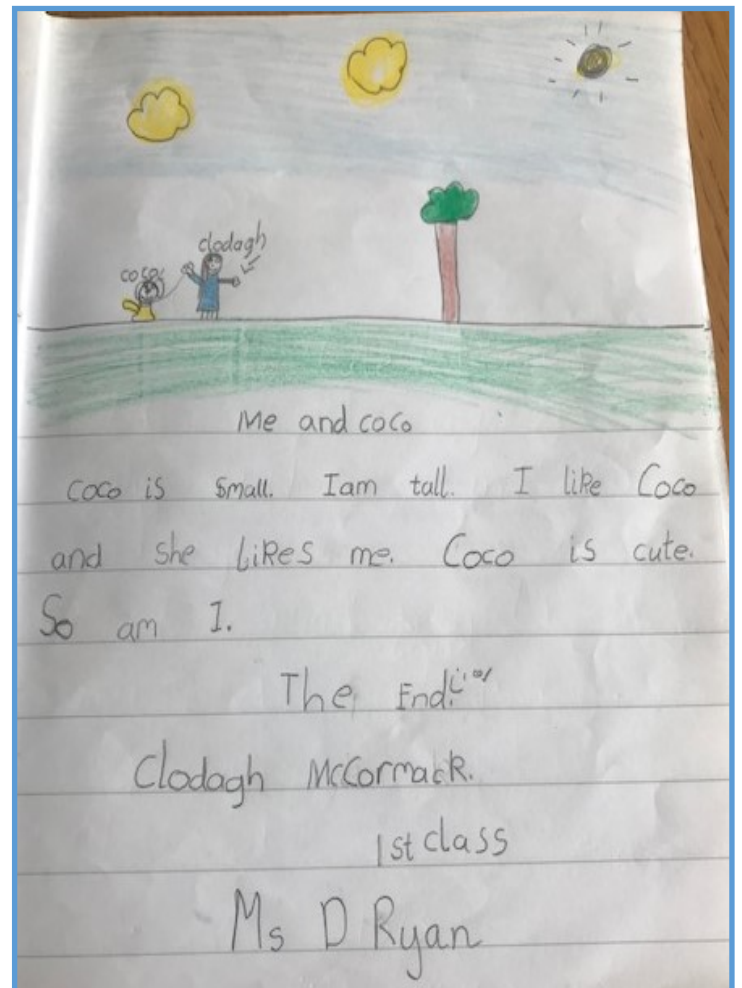 clodagh
coco
Me and coco
coco is small. Iam tall. I like Coco
and she likes me. Coco is cute.
So am I.
The End!
Clodagh McCormack.
1st class
Ms D Ryan